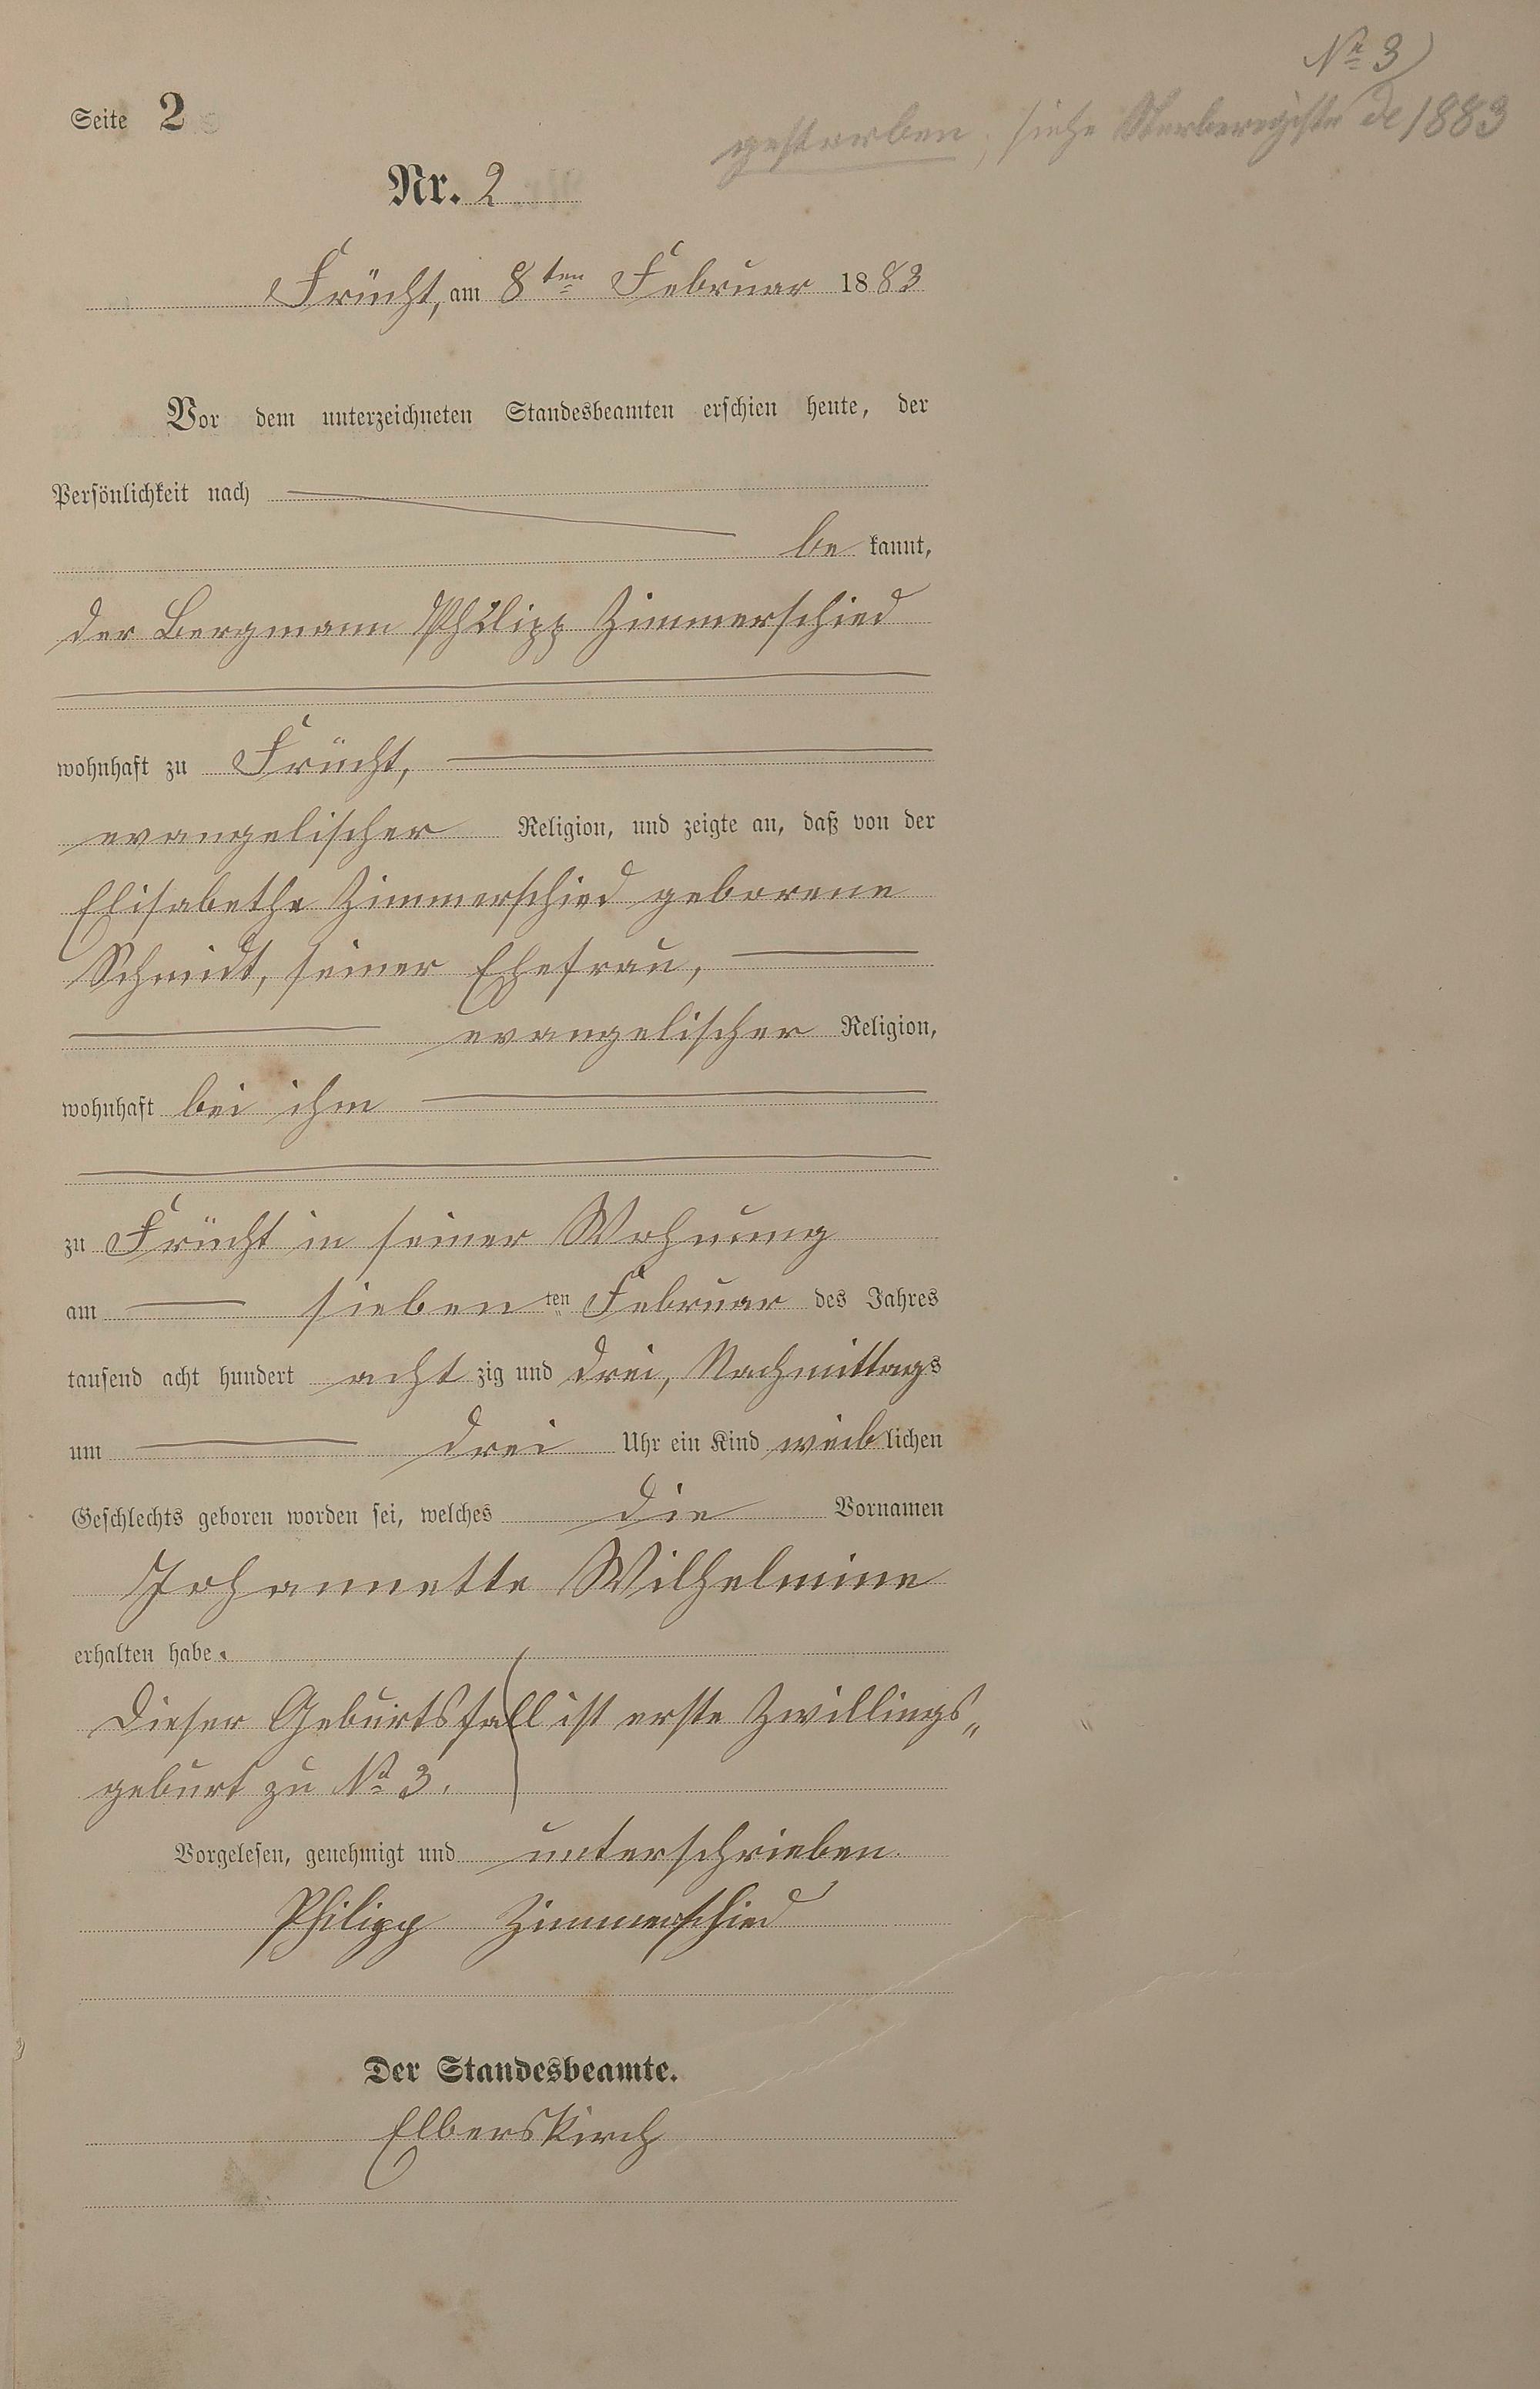 Nr 3
Seite 2
gestorben, siehe Sterberegister de 1883
Nr. 2
Frücht, am 8ten Februar 1883
Vor dem unterzeichneten Standesbeamten erschien heute, der
Persönlichkeit nach
be kannt,
der Bergmann Philipp Zimmerschied
wohnhaft zu Frücht,
evangelischer Religion, und zeigte an, daß von der
Elisabethe Zimmerschied geborene
Schmidt, seiner Ehefrau,
evangelischer Religion,
wohnhaft bei ihm
zu Frücht in seiner Wohnung
am sieben ten Februar des Jahres
tausend acht hundert acht zig und drei, Nachmittags
um drei Uhr ein Kind weiblichen
Geschlechts geboren worden sei, welches die Vornamen
Johannette Wilhelmine
erhalten habe.
Dieser Geburtsfall ist erste Zwillings„
geburt zu No 3.
Vorgelesen, genehmigt und unterschrieben.
Philipp Zimmerschied
Der Standesbeamte.
Elberskirch